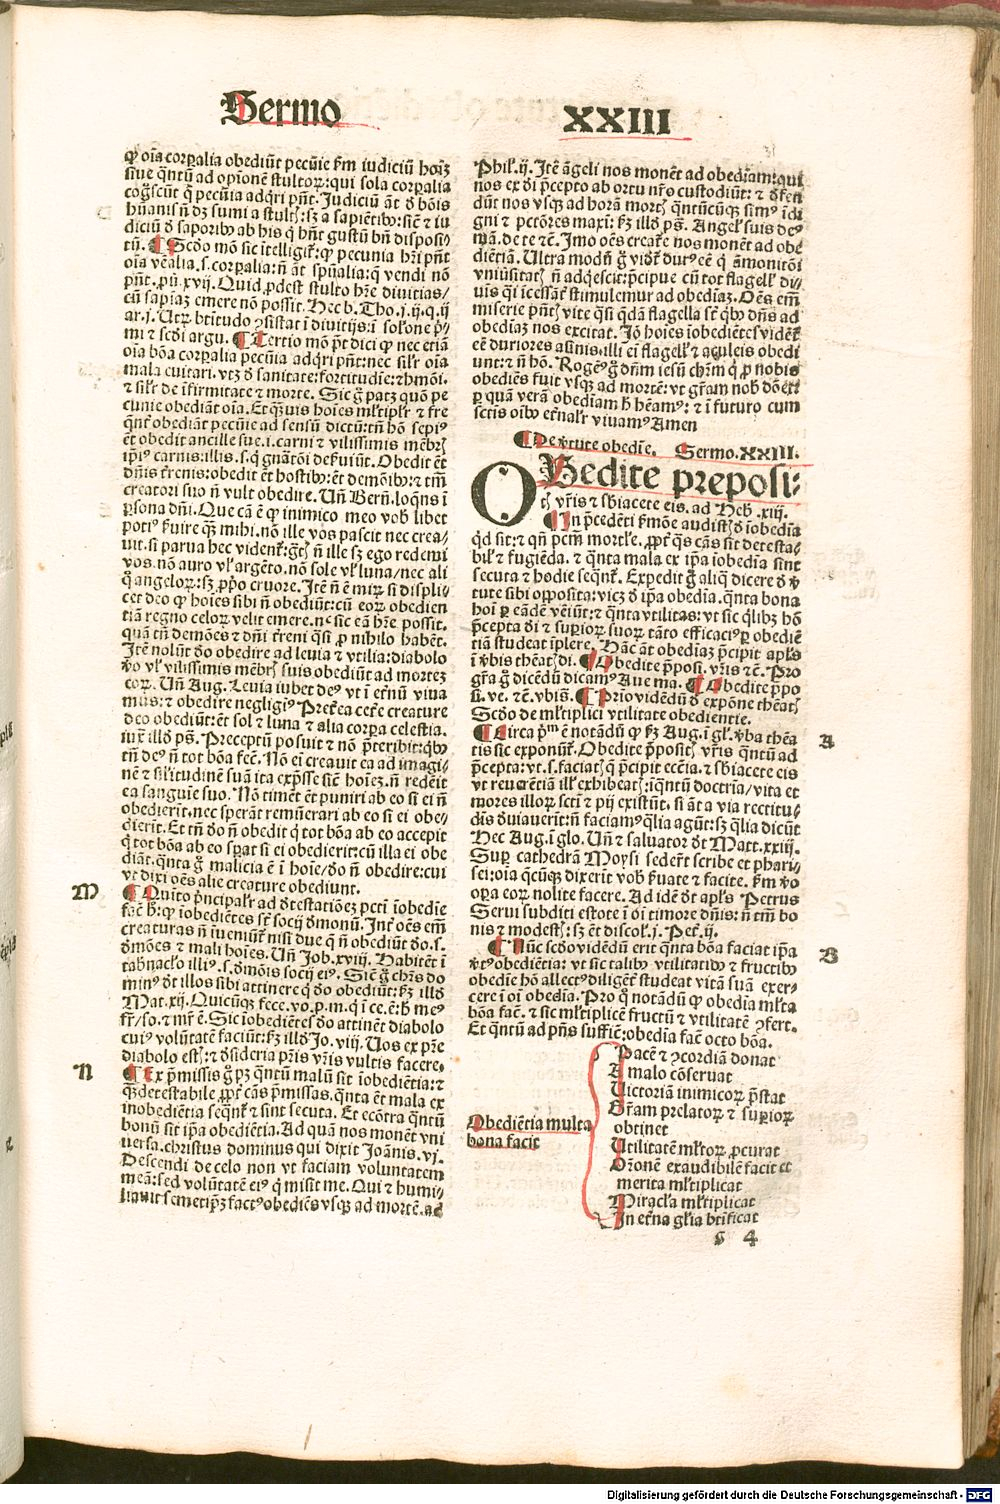 Sermo XXIII
ꝙ oı̄a corꝑalia obediūt pecūie ẜm iudiciū hoı̄ʒ
siue q̄ntū ad opı̄onē stultoꝝ: qui sola corꝑalia
cogscūt q̄ pecūia adq̄ri pn̄t. Judiciū āt d̄ bōis
hūanis n̄ dʒ sumi a stultꝭ: sʒ a sapiētibꝰ: sic̄ ⁊ iu
diciū d̄ saporibꝰ ab his q̄ hn̄t gustū bn̄ disposi⸗
tū. Scd̓o mō sic ı̄telligit̄: ꝙ pecunia hr̄i pn̄t
oı̄a vēalia .s. corꝑalia: n̄ āt spūalia: q̄ vendi nō
pn̄t. ꝓū. xvij. Quid ꝓdest stulto hr̄e diuitias/
cū sapiaʒ emere nō possit. Hec b. Tho. j. ij. q. ij
ar. j. Utꝝ btı̄tudo ꝯsistat ı̄ diuitijs: ı̄ soľone p̄⸗
mi ⁊ scd̓i argu. Tertio mō p̄t dici ꝙ nec etiā
oı̄a bōa corꝑalia pecūia adq̄ri pn̄t: nec siľr oı̄a
mala euitari. vtʒ d̄ sanitate: fortitudı̄e: ⁊ hmōi.
⁊ siľr de ı̄firmitate ⁊ morte. Sic g̊ patʒ quō pe
cunie obediāt oı̄a. Et q̄uis hoı̄es ml̓tiplr̄ ⁊ fre
q̄nt̄ obediāt pecūie ad sensū dictū: tn̄ hō sepiꝰ
ēt obedit ancille sue .i. carni ⁊ vilissimis mēbrꝭ
ip̄iꝰ carnis: illis .s. q̄ gnātōi deẜuiūt. Obedit ēt
dn̄is tr̄enis: obedit ēt hostibꝰ: ēt demōibꝰ: ⁊ tm̄
creatori suo n̄ vult obedire. Un̄ Bern̄. loq̄ns ı̄
ꝑsona dn̄i. Que cā ē ꝙ inimico meo vob̓ libet
potiꝰ ẜuire q̄ʒ mihi. nō ille vos pascit nec crea⸗
uit. si parua hec vident̄: g̊tꝭ n̄ ille sʒ ego redemi
vos. nō auro vl̓ argēto. nō sole vl̓ luna/ nec ali
q̊ angeloꝝ: sʒ ꝓp̄o cruore. Jtē n̄ ē mirꝝ si displi⸗
cet deo ꝙ hoı̄es sibi n̄ obediūt: cū eoꝝ obedien
tiā regno celoꝝ velit emere. nec sic eā hr̄e possit.
quā tn̄ demōes ⁊ dn̄i tr̄eni q̄si ꝓ nihilo habēt.
Jtē nolūt do obedire ad leuia ⁊ vtilia: diabolo
ꝟo vl̓ vilissimis mēbrꝭ suis obediūt ad morteʒ
coꝝ. Un̄ Aug. Leuia iubet deꝰ vt ı̄ et̄nū viua
mus: ⁊ obedire negligiꝰ. Pret̓ea cet̄e creature
deo obediūt: ēt sol ⁊ luna ⁊ alia corꝑa celestia.
iux̄ illd̓ ps̄. Preceptū posuit ⁊ nō p̄teribit: q̇bꝰ
tn̄ deꝰ n̄ tot bōa fec̄. Nō ei creauit ea ad imagi⸗
nē ⁊ sil̓itudinē suā ita exp̄sse sic̄ hoı̄eʒ. n̄ redēit
ea sanguı̄e suo. Nō timēt ēt puniri ab eo si ei n̄
obedierı̄t. nec sperāt remūerari ab eo si ei obe⸗
dierı̄t. Et tn̄ do n̄ obedit q̄ tot bōa ab eo accepit
q̄ tot bōa ab eo sꝑat si ei obedierit: cū illa ei obe
diāt. q̄nta g̊ malicia ē ı̄ hoı̄e/ do n̄ obedire: cui
vt dixi oēs alie creature obediunt.
M Quı̄to p̄ncipalr̄ ad d̄testatiōeʒ pcti ı̄obedı̄e
faē h̓: ꝙ ı̄obediētes st̄ socij d̄monū. Jnt̓ oēs em̄
creaturas n̄ ı̄ueniunt̄ nisi due q̄ n̄ obediūt do .s.
d̄mōes ⁊ mali hoı̄es. Un̄ Job. xviij. Habitēt ı̄
tabnacl̓o illiꝰ .s. d̄mōis socij eiꝰ. Sic g̊ chrs̄ do
minꝰ d̄t illos sibi attinere q̄ do obediūt: ẜʒ illd̓
Mat. xij. Quicūqʒ fece. vo. p. m. q̄ ı̄ ce. ē: h̓ meꝰ
fr̄/ so. ⁊ mr̄ ē. Sic ı̄obediētes do attinēt diabolo
cuiꝰ volūtatē faciūt: ẜʒ illd̓ Jo. viij. Uos ex pr̄e
diabolo estꝭ: ⁊ d̄sideria pr̄is vr̄is vultis facere.
N Ex p̄missis g̊ pʒ q̄ntū malū sit ı̄obediētia: ⁊
q̄ʒ detestabile ꝓpt̄ cās p̄missas. q̄nta ēt mala ex
inobediētia seq̄nt̄ ⁊ sint secuta. Et ecōtra q̄ntū
bonū sit ip̄a obediētia. Ad quā nos monēt vni
uersa. christus dominus qui dixit Joānis. vj.
Descendi de celo non vt faciam voluntatem
meā: sed volūtatē eiꝰ q̄ misit me. Qui ⁊ humi⸗
liauit semetip̄ʒ factꝰ obediēs vsqʒ ad mortē. ad
Phil̓. ij. Jtē āgeli nos monēt ad obediam: qui
nos ex di p̄cepto ab ortu nr̄o custodiūt: ⁊ d̄fen
dūt nos vsqʒ ad horā mortꝭ q̄ntūcūqʒ simꝰ ı̄di
gni ⁊ pctōres maxi: ẜʒ illd̓ ps̄. Angel̓ suis deꝰ
mā. de te ⁊c̄. Jmo oēs creat̄e nos monēt ad obe
diētiā. Ultra modū g̊ vidēt̄ durꝰ eē q̄ āmonitōi
vniusitatꝭ n̄ adq̄escit: p̄cipue cū tot flagell̓ di⸗
uis q̇ ı̄cessāt̄ stimulemur ad obediaʒ. Oēs em̄
miserie pn̄tꝭ vite q̄si q̄dā flagella st̄ q̇bꝰ dn̄s ad
obediaʒ nos excitat. Jō hoı̄es ı̄obediētes vident̄
eē duriores asinis. illi ei flagell̓ ⁊ aculeis obedi
unt: ⁊ n̄ hō. Rogeꝰ g̊ dn̄m iesū chrm̄ q̄ ꝓ nobis
obediēs fuit vsqʒ ad mortē: vt grām nob̓ dōet:
ꝑ quā verā obediam h̓ hēamꝰ: ⁊ ı̄ futuro cum
sctis oı̄bꝰ et̄nalr̄ viuamꝰ Amen
De ꝟtute obedı̄e. Sermo. XXIII.
OBedite preposi⸗
tꝭ vr̄is ⁊ sb̓iacete eis. ad Heb̓. xiij.
Jn p̄cedēti ẜmōe audistꝭ d̄ ı̄obedı̄a
q̇d sit: ⁊ qn̄ pctm̄ mortl̓e. ꝓpt̄ q̄s cās sit detesta⸗
bil̓ ⁊ fugiēda. ⁊ q̄nta mala ex ip̄a ı̄obedia sint
secuta ⁊ hodie seq̄nt̄. Expedit g̊ aliq̇ dicere d̄ ꝟ
tute sibi opposita: vicʒ d̄ ip̄a obedia. q̄nta bona
hoı̄ ꝑ eādē vēiūt: ⁊ q̄nta vtilitas: vt sic q̇libʒ hō
p̄cepta di ⁊ suꝑioꝝ suoꝝ tāto efficaciꝰ ꝑ obediē
tiā studeat ı̄plere. Hāc āt obediaʒ p̄cipit apl̓s
ı̄ ꝟbis theātꝭ di. Obedite p̄posi. vr̄is ⁊c̄. Pro
gr̄a g̊ dicēdi dicamꝰ Aue ma. Obedite p̄po
si. ve. ⁊c̄. vbi s̄. Prı̄o vidēdū d̄ expōne theātꝭ
Scd̓o de ml̓tiplici vtilitate obedientie.
A Circa p̄ᵐ ē notādū ꝙ ẜʒ Aug. ı̄ gl̓. ꝟba thēa
tis sic exponūt̄. Obedite p̄positꝭ vr̄is q̄ntū ad
p̄cepta: vt .s. faciatꝭ q̄ p̄cipit eccl̓ia. ⁊ sb̓iacete eis
vt reuerētiā ill̓ exhibeatꝭ: ı̄q̄ntū doctrı̄a/ vita et
mores illoꝝ scti ⁊ pij existūt. si āt a via rectitu⸗
dı̄s d̄uiauerı̄t: n̄ faciamꝰ q̄lia agūt: sʒ q̄lia dicūt
Hec Aug. ı̄ glo. Un̄ ⁊ saluator d̄t Matt. xxiij.
Suꝑ cathedrā Moysi sederūt scribe et phari⸗
sei: oı̄a q̄cūqʒ dixerı̄t vob̓ ẜuate ⁊ facite. ẜm ꝟo
oꝑa eoꝝ nolite facere. Ad idē d̄t apl̓s Petrus
Serui subditi estote ı̄ oı̄ timore dn̄is: n̄ tm̄ bo
nis ⁊ modestꝭ: sʒ ēt discol̓. j. Pet̄. ij.
B Nūc scd̓o vidēdū erit q̄nta bōa faciat ip̄a
ꝟtꝰ obediētia: vt sic talibꝰ vtilitatibꝰ ⁊ fructibꝰ
obedı̄e hō allectꝰ diligēt̄ studeat vitā suā exer⸗
cere ı̄ oı̄ obedı̄a. Pro q̊ notādū ꝙ obedia ml̓ta
bōa faē. ⁊ sic ml̓tiplicē fructū ⁊ vtilitatē ꝯfert.
Et q̄ntū ad pn̄s suffic̄: obedia faē octo bōa.
Obediētia multa
bona facit
Pacē ⁊ ꝯcordiā donat
A malo cōseruat
Uictoriā inimicoꝝ p̄stat
Grām prelatoꝝ ⁊ suꝑioꝝ
obtinet
Utilitatē ml̓toꝝ ꝓcurat
Or̄onē exaudibilē facit et
merita ml̓tiplicat
Miracl̓a ml̓tiplicat
Jn et̄na gl̓ia btı̄ficat
s 4
Digitalisierung gefördert durch die Deutsche Forschungsgemeinschaft - DFG